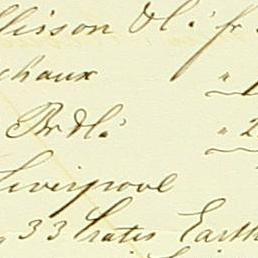 llisson & Al. fr.
chaux "
Br & Al. " 2
Liverpool
33 Crates Earth